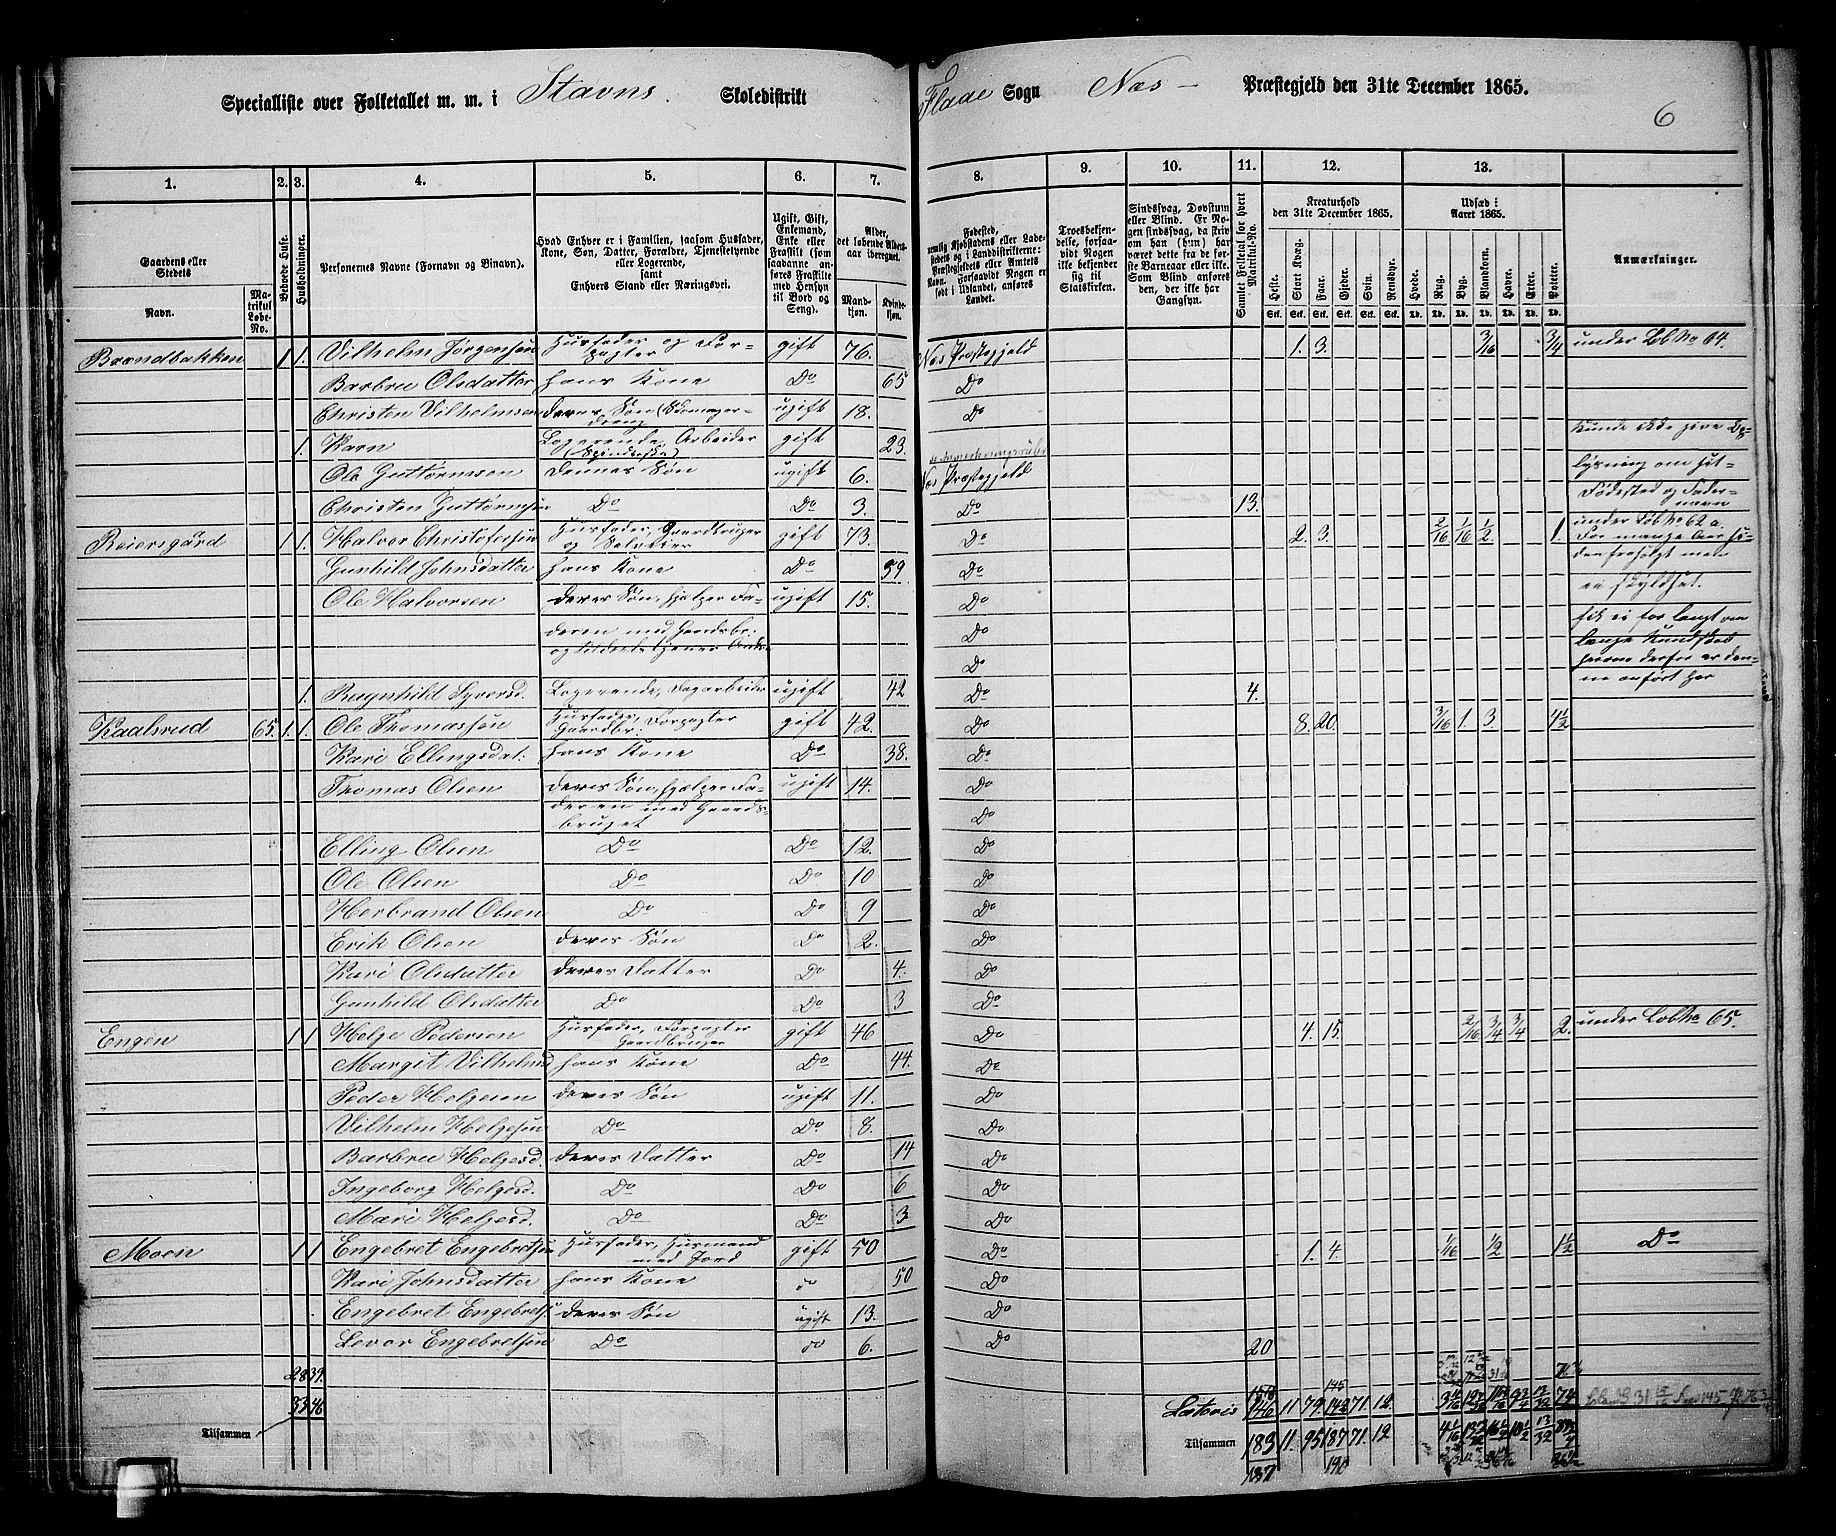 Specialliste over Folketallet m. m. i Stavns Skoledistrikt Flaae Sogn Næs Præstegjeld den 31te December 1865.
6
1. 2. 3. 4. 5. 6. 7. 8. 9. 10. 11. 12. 13.
Gaardens eller Stedets
Navn.
Matrikul Løbe-No.
Bebodde Huse.
Husholdninger.
Personernes Navne (Fornavn og Binavn).
Hvad Enhver er i Familien, saasom Husfader, Kone, Søn, Datter, Forældre, Tjenestetyende eller Logerende,
samt
Enhvers Stand eller Næringsvei.
Ugift, Gift, Enkemand, Enke eller Fraskilt (som saadanne anføres Fraskilte med Hensyn til Bord og Seng).
Alder, det løbende Aldersaar iberegnet.
Mandkjøn.
Kvindekjøn.
Fødested,
nemlig Kjøbstadens eller Ladestedets og i Landdistrikterne: Præstegjeldets eller Amtets Navn. Forsaavidt Nogen er født i Udlandet, anføres Landet.
Troesbekjendelse, forsaavidt Nogen ikke bekjender sig til Statskirken.
Sindssvag, Døvstum eller Blind. Er Nogen sindssvag, da skriv om han (hun) har været dette fra de første Barneaar eller ikke. Som Blind anføres den, der ikke har Gangsyn.
Samlet Folketal for hvert Matrikul-No.
Kreaturhold
den 31te December 1865.
Heste. Stort Kvæg. Faar. Gjeder. Svin. Rensdyr.
Udsæd i
Aaret 1865.
Hvede. Rug. Byg. Blandkorn. Havre. Erter. Poteter.
Anmærkninger.
Brændbakken 1 1. Vilhelm Jørgensen Husfader og Forpagter gift 76. Næs Præstegjeld 1. 3. 3/16 3/4 under Løb No 64.
Barbru Olsdatter hans Kone Do 65 Do
Christen Vilhelmsen deres Søn ugift 18. Do
1. Karn Logerende Arbeider gift 23. Kunde ikke give Op-
Ole Guttormsen dennes Søn ugift 6. Næs Præstegjeld lysning om sit
Christen Guttormsen Do Do 3. Do 13. Fødested og Fadernavn
Reiersgård 1 1. Halvor Christofersen Husfader, Gaardbruger og Selveier gift 73. Do 2. 3. 2/16 1/16 1/2 1. under Løb No 62 a.
Gunhild Johnsdatter hans Kone Do 59. Do
Ole Halvorsen deres Søn, hjelper Fa- ugift 15. Do
deren med Gaardsbr: Do
Do
1. Ragnhild Syversd. Logerende, Dagarbeider ugift 42 Do 4.
Kaalsrud 65. 1. 1. Ole Thomassøn Husfader, Forpagter Gaardbr: gift 42. Do 8. 20. 3/16 1. 3. 4 1/2
Kari Ellingsdat: hans Kone Do 38. Do
Thomas Olsen deres Søn, hjælper Fa- ugift 14. Do
deren med Gaards- bruget Do
Elling Olsen Do Do 12. Do
Ole Olsen Do Do 10 Do
Herbrand Olsen Do Do 9 Do
Erik Olsen deres Søn Do 2. Do
Kari Olsdatter deres Datter Do 4. Do
Gunhild Olsdatter Do Do 3 Do
Engen 1 1 Helge Pedersen Husfader, Forpagter Gaardbruger gift 46 Do 4. 15. 2/16 3/4 3/4 2. under Løb No 65.
Margit Vilhelmsd hans Kone Do 44. Do
Peder Helgesen deres Søn ugift 11. Do
Vilhelm Helgesøn Do Do 8. Do
Barbru Helgesd. deres Datter Do 14 Do
Ingeborg Helgesd. Do Do 6 Do
Mari Helgesd. Do Do 3 Do
Moen 1 1 Engebret Engebretsen Husfader, Husmand med Jord gift 50 Do 1. 4. 1/16 1/2 1 1/2 Do
Kari Johnsdatter hans Kone do 50 Do
Engebret Engebretsø. deres Søn ugift 13. Do
Levor Engebretsøn Do do 6. Do 20
28 39.
33 46
Latus 146 11 79. 142 71. 12. 74
Tilsammen Tilsammen 183 11. 95 187 71. 12
187 190